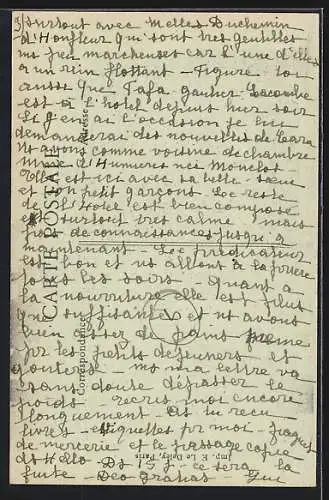 3) surtout avec Melles Duchemin
d'Honfleur qui sont très gentilles
un peu marcheuses car l'une d'elles
a un rein flottant - Figure toi
aussi que Tafa-gauher Lacombe
est à l'hôtel depuis hier soir
Si j'en ai l'occasion je lui
demanderai des nouvelles de
Ns avons comme voisine de chambre
Mme d'Humières née Monclos -
Elle est ici avec sa belle sœur
et un petit garçons. Le reste
de l'hôtel est bien composé
et surtout très calme mais
pas de connaissances jusqu'à
maintenant - Le prédicateur
est bon et ns allons à la prière
tous les soirs - Quant à
la nourriture elle est plus
que suffisante et ns avons
bien assez de pains même
pr les petits déjeuners et
goûters - ma lettre va
sans doute dépasser le
poids - écris moi encore
longuement - As tu reçu
livres - étiquettes pr moi -
de mercerie et le passage copié
Ds 15 j. ce sera la
fuite - Deo gratias
CARTE POSTALE
Correspondance
Adresse
Imp. E. Le Deley, Paris